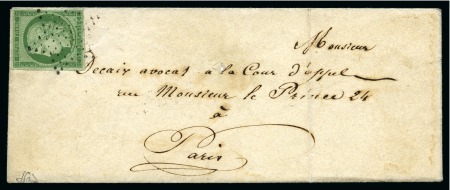 Monsieur
Decaix avocat à la Cour d'appel
rue Monsieur le Prince 24
à
Paris